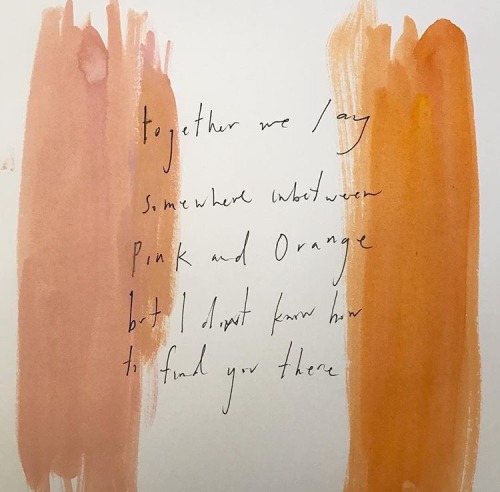 together we lay
somewhere inbetween
Pink and Orange
but I don't know how
to find you there